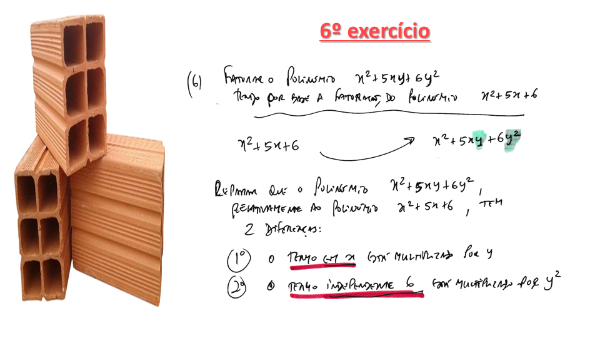 6º exercício
(6) FATORAR O POLINÔMIO x²+5xy+6y²
TENDO POR BASE A FATORAÇÃO DO POLINÔMIO x²+5x+6
x²+5x+6 x²+5xy+6y²
REPARAR QUE O POLINÔMIO x²+5xy+6y²,
RELATIVAMENTE AO POLINÔMIO x²+5x+6, TEM
2 DIFERENÇAS:
1º O TERMO EM x ESTÁ MULTIPLICADO POR y
2º O TERMO INDEPENDENTE 6 ESTÁ MULTIPLICADO POR y²